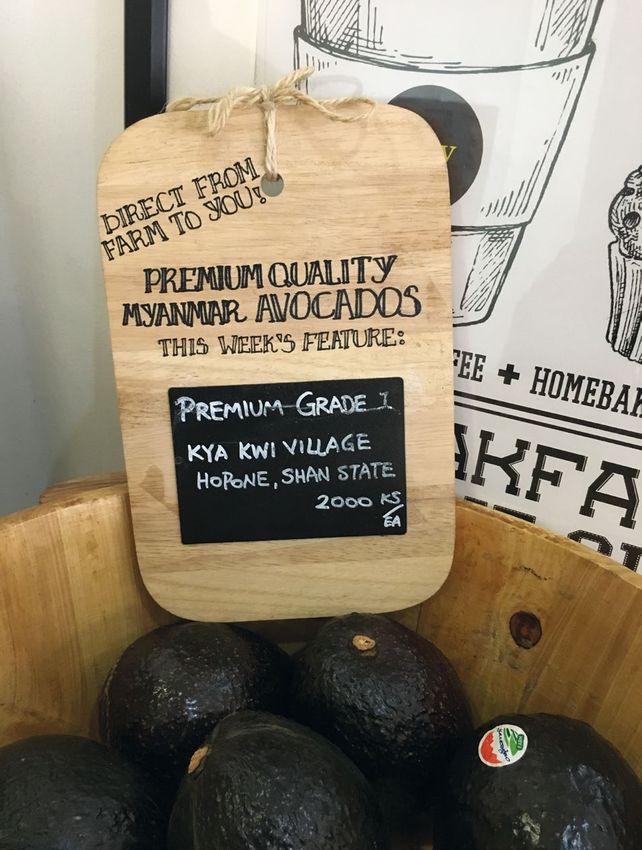 DIRECT FROM
FARM TO YOU!
PREMIUM QUALITY
MYANMAR AVOCADOS
THIS WEEK'S FEATURE:
PREMIUM GRADE 1
KYA KWI VILLAGE
HOPONE, SHAN STATE
2000 KS/EA
+ HOMEBAK